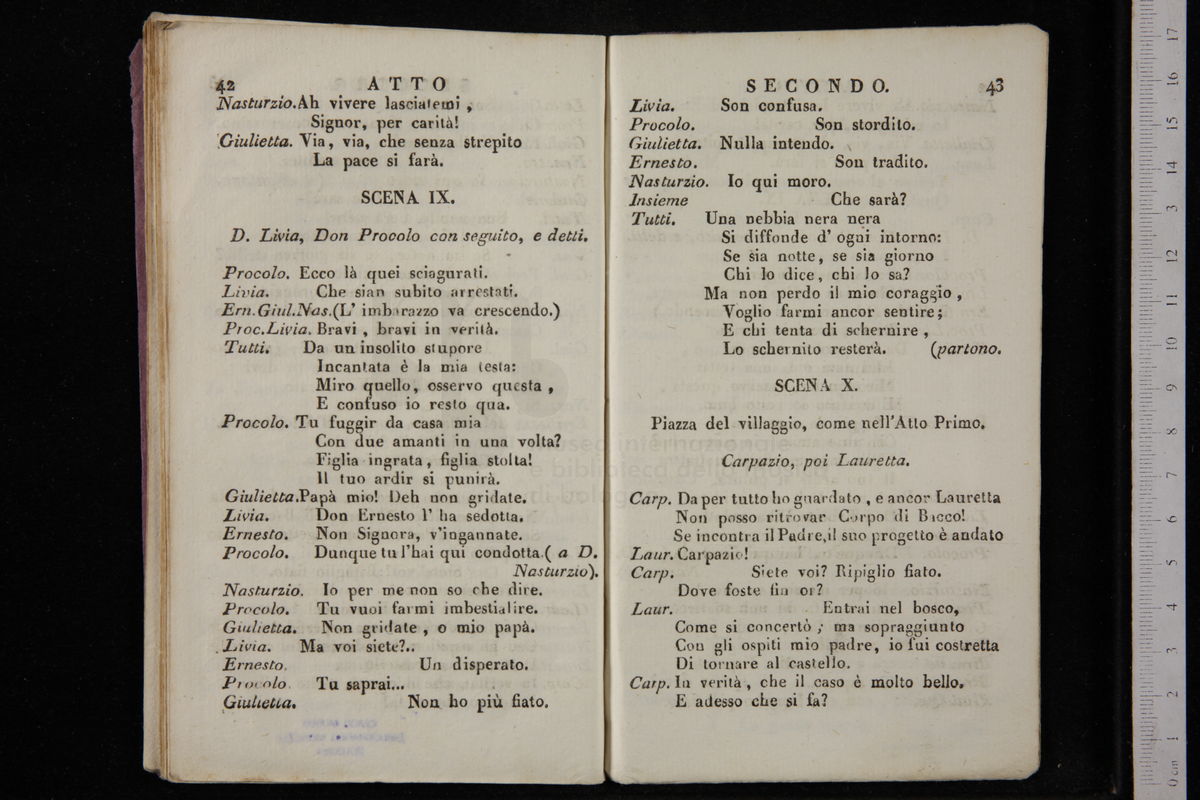 42 ATTO
Nasturzio. Ah vivere lasciatemi,
Signor, per carità!
Giulietta. Via, via, che senza strepito
La pace si farà.
SCENA IX.
D. Livia, Don Procolo con seguito, e detti.
Procolo. Ecco là quei sciagurati.
Livia. Che sian subito arrestati.
Ern. Giul. Nas. (L' imbarazzo va crescendo.)
Proc. Livia. Bravi, bravi in verità.
Tutti. Da un insolito stupore
Incantata è la mia testa:
Miro quello, osservo questa,
E confuso io resto qua.
Procolo. Tu fuggir da casa mia
Con due amanti in una volta?
Figlia ingrata, figlia stolta!
Il tuo ardir si punirà.
Giulietta. Papà mio! Deh non gridate.
Livia. Don Ernesto l' ha sedotta.
Ernesto. Non Signora, v'ingannate.
Procolo. Dunque tu l'hai qui condotta. (a D.
Nasturzio).
Nasturzio. Io per me non so che dire.
Procolo. Tu vuoi farmi imbestialire.
Giulietta. Non gridate, o mio papà.
Livia. Ma voi siete?..
Ernesto. Un disperato.
Procolo. Tu saprai...
Giulietta. Non ho più fiato.
SECONDO. 43
Livia. Son confusa.
Procolo. Son stordito.
Giulietta. Nulla intendo.
Ernesto. Son tradito.
Nasturzio. Io qui moro.
Insieme Che sarà?
Tutti. Una nebbia nera nera
Si diffonde d' ogni intorno:
Se sia notte, se sia giorno
Chi lo dice, chi lo sa?
Ma non perdo il mio coraggio,
Voglio farmi ancor sentire;
E chi tenta di schernire,
Lo schernito resterà. (partono.
SCENA X.
Piazza del villaggio, come nell'Atto Primo.
Carpazio, poi Lauretta.
Carp. Da per tutto ho guardato, e ancor Lauretta
Non posso ritrovar Corpo di Bacco!
Se incontra il Padre, il suo progetto è andato
Laur. Carpazio!
Carp. Siete voi? Ripiglio fiato.
Dove foste fin or?
Laur. Entrai nel bosco,
Come si concertò; ma sopraggiunto
Con gli ospiti mio padre, io fui costretta
Di tornare al castello.
Carp. In verità, che il caso è molto bello.
E adesso che si fa?